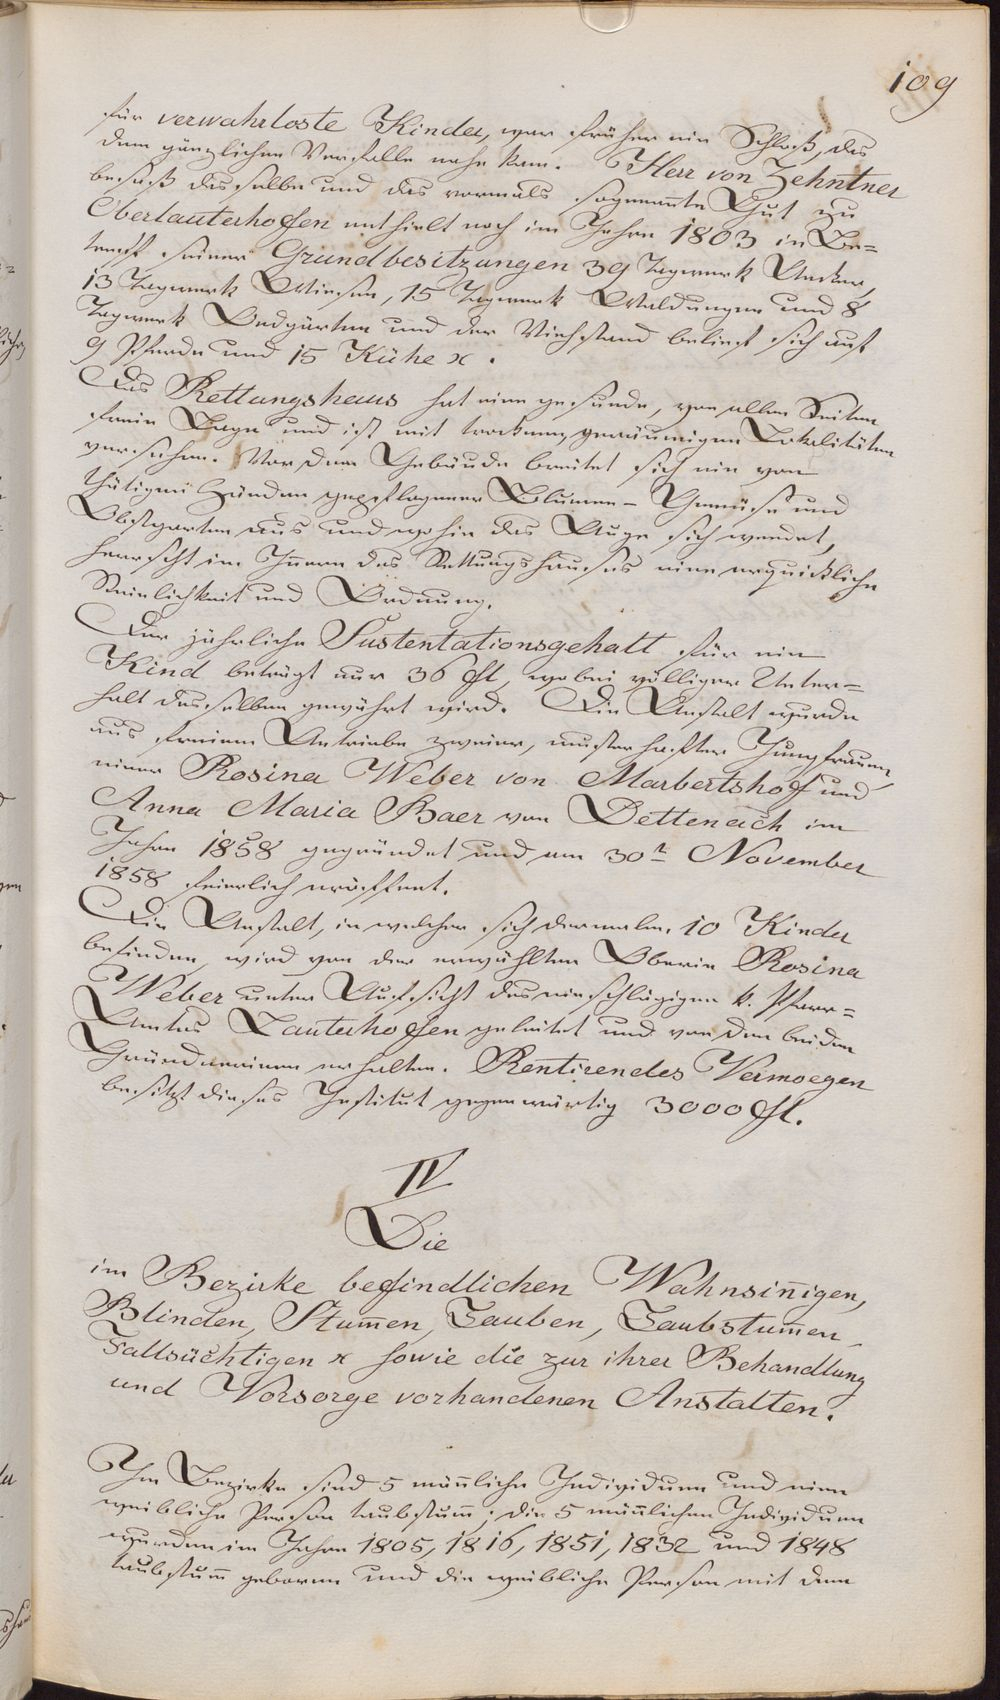 109
für verwahrloste Kinder, war früher ein Schloß, das
dem gänzlichen Verfalle nahe kam. Herr von Zehntner
besaß dasselbe und das vormals sogenannte Gut zu
Oberlauterhoffen enthielt noch im Jahre 1803 in Be=
treff seiner Grundbesitzungen 39 Tagwerk Aecker,
13 Tagwerk Wiesen, 15 Tagwerk Waldungen und 8
Tagwerk Oedgärten und der Viehstand belief sich auf
9 Pferde und 15 Kühe x.
Das Rettungshaus hat eine gesunde, von allen Seiten
freie Lage und ist mit trocknen, geräumigen Lokalitäten
versehen. Vor dem Gebäude breitet sich ein von
thätigen Händen gepflegener Blumen- Gemüse und
Obstgarten aus und wohin das Auge sich wendet,
herrscht im Innern des Rettungshauses eine erquickliche
Reinlichkeit und Ordnung.
Der jährliche Sustentationsgehalt für ein
Kind beträgt nur 36 fl, wobei völliger Unter=
halt desselben gewährt wird. Die Anstalt wurde
aus freiem Antriebe zweier, musterhafter Jungfrauen,
einer Rosina Weber von Marbertshof und
Anna Maria Baer von Dettenach im
Jahre 1858 gegründet und am 30n November
1858 feierlich eröffnet.
Die Anstalt, in welcher sich dermalen 10 Kinder
befinden, wird von der erwählten Oberin Rosina
Weber unter Aufsicht des einschlägigen k. Pfarr=
Amtes Lauterhoffen geleitet und von den beiden
Gründerinen erhalten. Rentirendes Vermoegen
besitzt dieses Institut gegenwärtig 3000 fl.
IV
Die
im Bezirke befindlichen Wahnsiñigen,
Blinden, Stum̃en, Tauben, Taubstum̃en,
Fallsüchtigen x sowie die zur ihrer Behandlung
und Vorsorge vorhandenen Anstalten.
Im Bezirke sind 5 mäñliche Individuen und eine
weibliche Person taubstum̃; die 5 mäñlichen Individuen
wurden im Jahre 1805, 1816, 1851, 1832 und 1848
taubstum̃ geboren und die weibliche Person mit dem